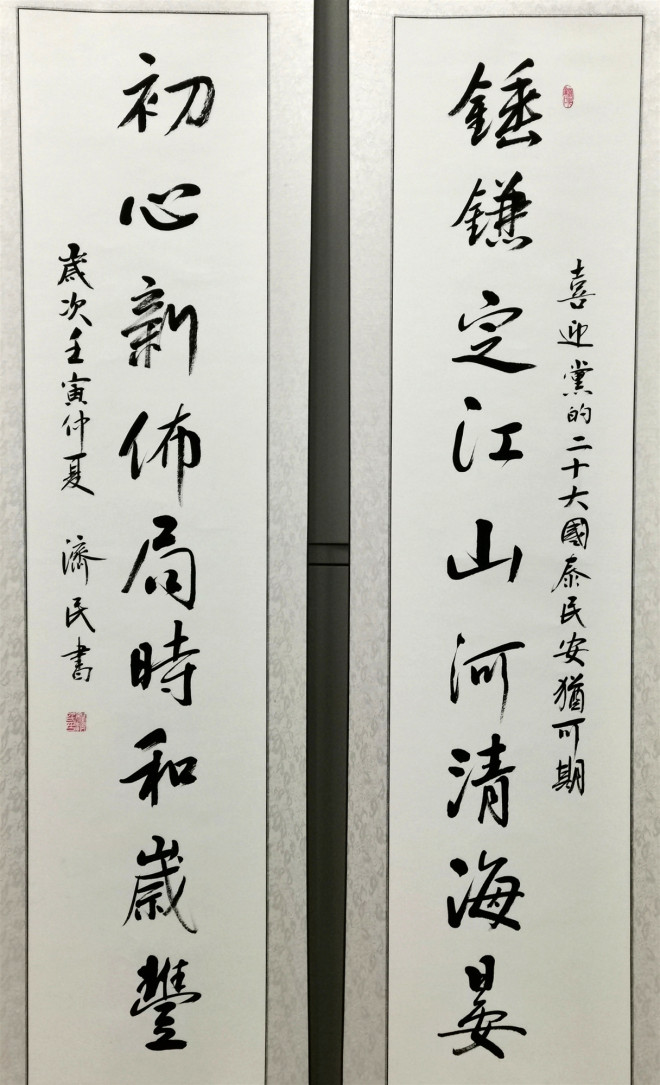 喜迎黨的二十大國泰民安猶可期
錘鐮定江山河清海晏
初心新佈局時和歲豐
歲次壬寅仲夏 濟民書